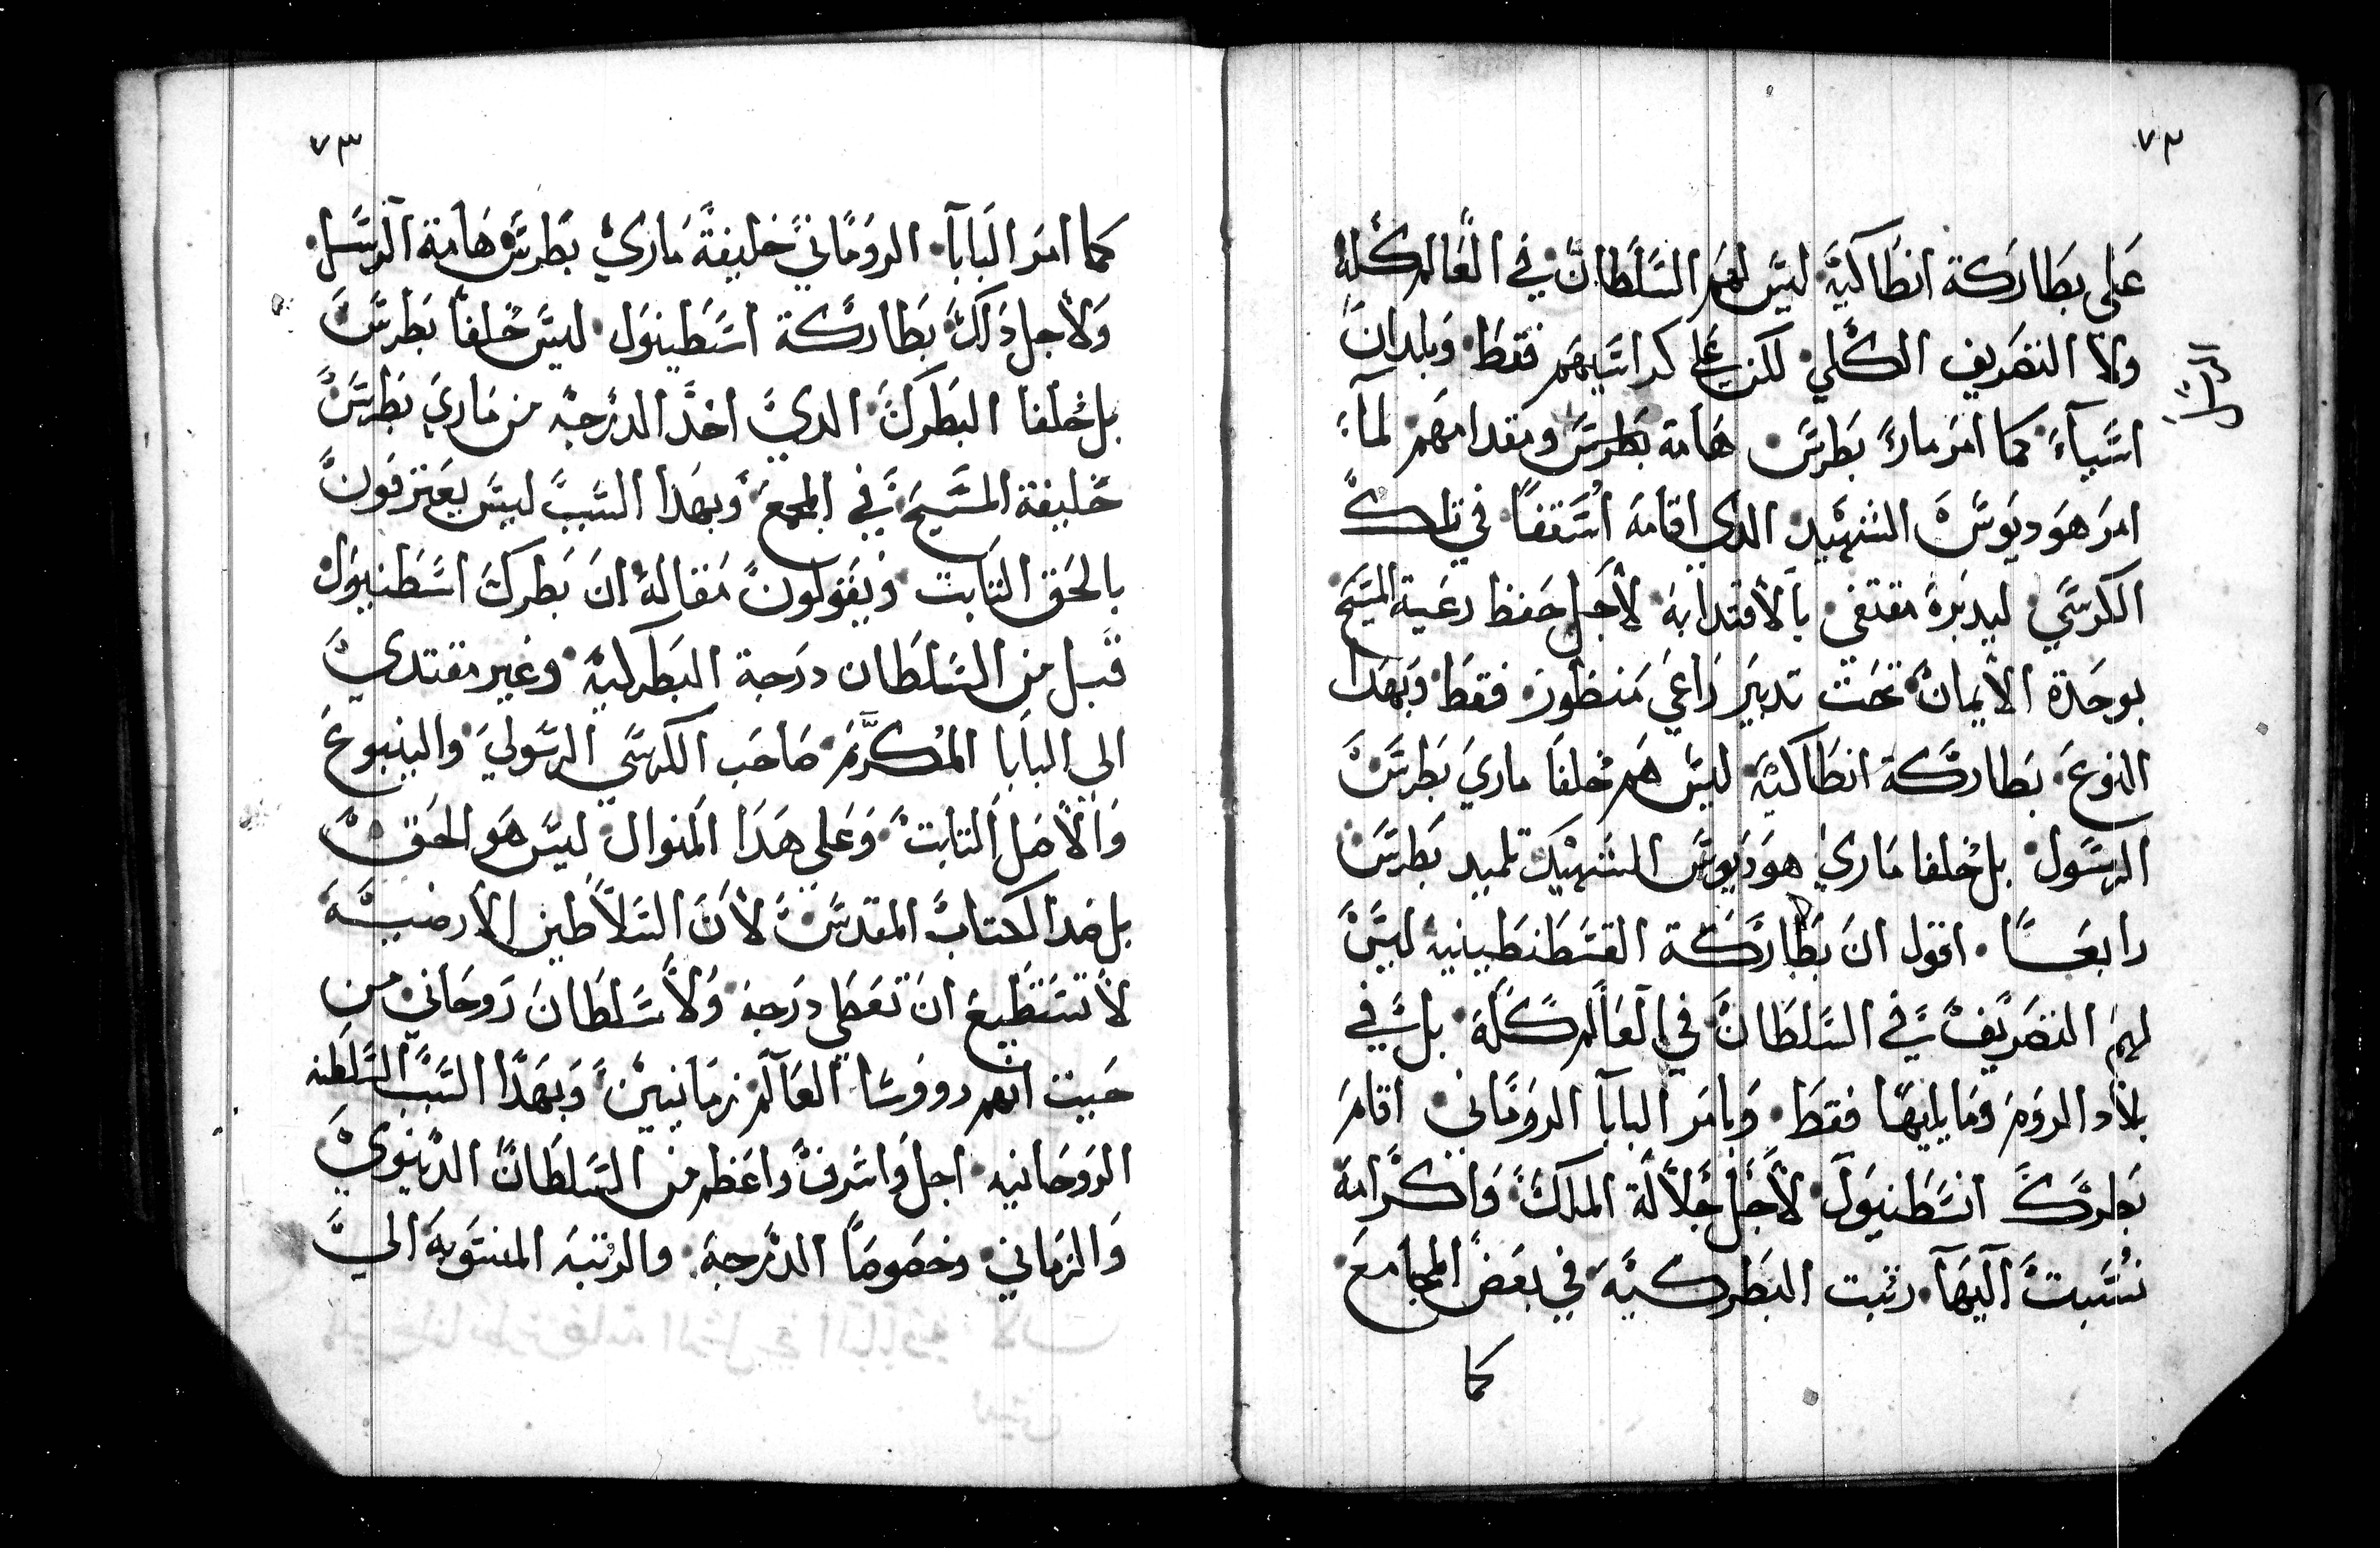 ٧٢
على بطاركة انطاكيه ليس لهم السلطان في العالم كله
ولا التصريف الكلي لكن على كراسيهم فقط وبلدان
اسياء كما امر مارى بطرس هامة بطرس ومقدامهم لماء
امر هوديوس الشهيد الدي اقامه اسقفا في تلك
الكرسي ليدبره مقتفى بالاقتدا به لاجل حفظ رعية المسيح
بوحدة الايمان تحت تدبير راعي منظور فقط وبهدا
النوع بطاركة انطاكيه ليس هم خلفا ماري بطرس
الرسول بل خلفا ماري هوديوس الشهيد تلميد بطرس
رابعا اقول ان بطاركة القسطنطينيه ليس
لهم التصريف في السلطان في العالم كله بل في
بلاد الروم وما يليها فقط وبامر البابا الروماني اقام
بطرك اسطنبول لاجل جلالة الملك واكرامه
نسبت اليها رتبت البطركيه في بعض المجامع
كما
٧٣
كما امر البابا الروماني خليفة ماري بطرس هامة الرسل
ولاجل داك بطاركة اسطنبول ليس خلفا بطرس
بل خلفا البطرك الدي اخد الدرجه من ماري بطرس
خليفة المسيح في المجمع وبهدا السبب ليس يعترفون
بالحق التابت ويقولون مقاله ان بطرك اسطنبول
قبل من السلطان درجة البطركيه وغير مقتدي
الى البابا المكرم صاحب الكرسي الرسولي والينبوع
والاصل التابت وعلى هدا المنوال ليس هو الحق
بل ضد الكتاب المقدس لان السلاطين الارضيه
لا تستطيع ان تعطي درجه ولا سلطان روحاني من
حيت انهم رووسا العالم زمانيين وبهدا السبب السلطنه
الروحانيه اجل واشرف واعظم من السلطان الدنيوي
والزماني وخصوصا الدرجه والرتبه المنتوبه الى